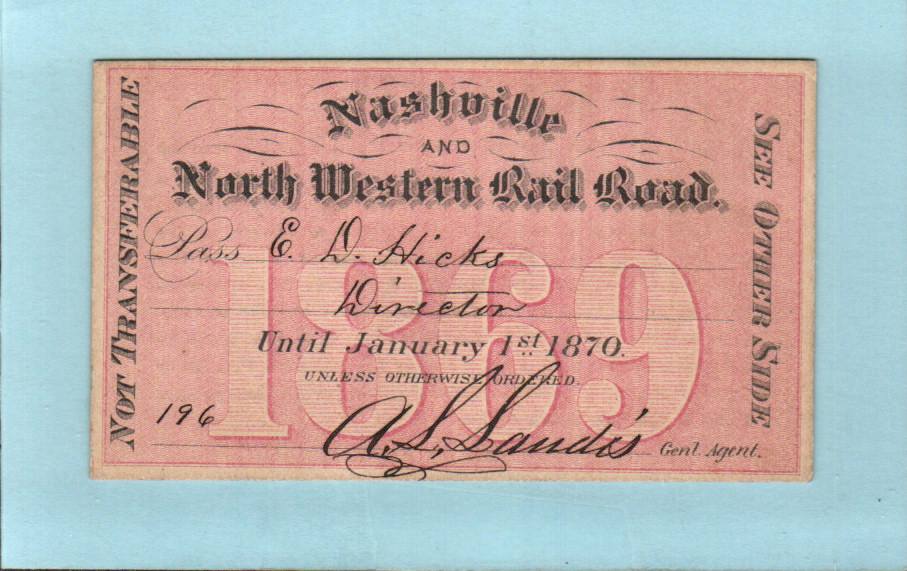 Nashville
AND
North Western Rail Road.
NOT TRANSFERABLE
SEE OTHER SIDE
Pass E. D. Hicks
Director
1869
Until January 1st 1870.
UNLESS OTHERWISE ORDERED.
196
A. S. Landis Genl. Agent.